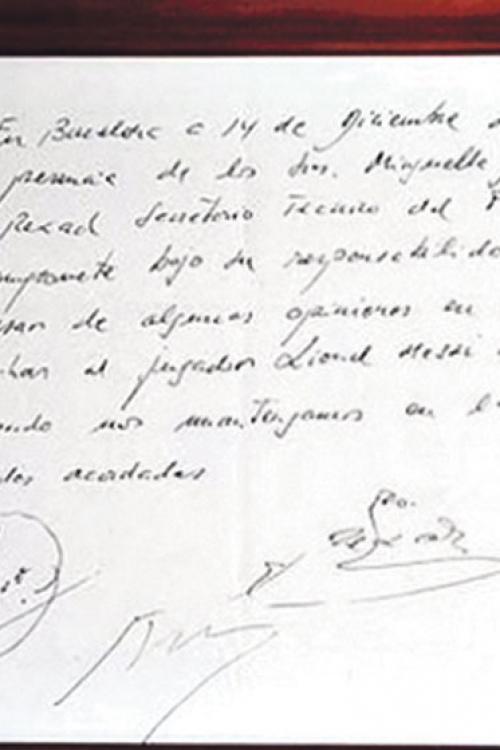 En Barcelona a 14 de Diciembre d
presencia de los Srs. Minguella
Rexad Secretario Tecnico del F
mpromete bajo su responsabilida
sar de algunas opiniones en
char al jugador Lionel Messi
ando nos mantengamos en l
des acordadas